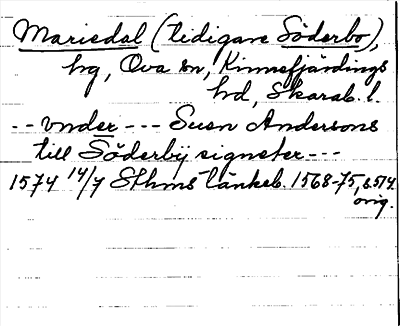 Mariedal (tidigare Söderbo),
hg, Ova sn, Kinnefjärdings
hd, Skarab. l.
-- vnder --- Suen Andersons
till Söderbÿ signeter ---
1574 14/7 Sthms tänkeb. 1568-75, s. 514
orig.